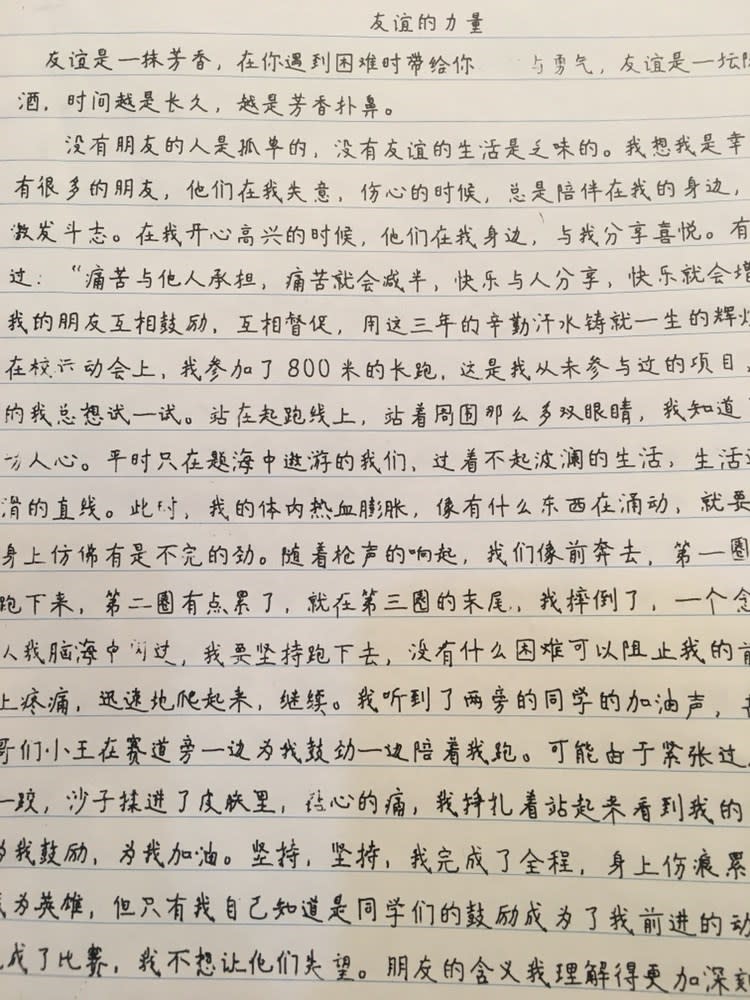 友谊的力量
友谊是一抹芳香，在你遇到困难时带给你 与勇气，友谊是一坛陈
酒，时间越是长久，越是芳香扑鼻。
没有朋友的人是孤单的，没有友谊的生活是乏味的。我想我是幸
有很多的朋友，他们在我失意，伤心的时候，总是陪伴在我的身边，
激发斗志。在我开心高兴的时候，他们在我身边，与我分享喜悦。有
过：“痛苦与他人承担，痛苦就会减半，快乐与人分享，快乐就会增
我的朋友互相鼓励，互相督促，用这三年的辛勤汗水铸就一生的辉煌
在校运动会上，我参加了800米的长跑，这是我从未参与过的项目，
的我总想试一试。站在起跑线上，站着周围那么多双眼睛，我知道
人心。平时只在题海中遨游的我们，过着不起波澜的生活，生活
滑的直线。此时，我的体内热血膨胀，像有什么东西在涌动，就要
身上仿佛有是不完的劲。随着枪声的响起，我们像前奔去，第一圈
跑下来，第二圈有点累了，就在第三圈的末尾，我摔倒了，一个念
从我脑海中闪过，我要坚持跑下去，没有什么困难可以阻止我的前
上疼痛，迅速地爬起来，继续。我听到了两旁的同学的加油声，
哥们小王在赛道旁一边为我鼓劲一边陪着我跑。可能由于紧张过
一跤，沙子揉进了皮肤里，钻心的痛，我挣扎着站起来看到我的
为我鼓励，为我加油。坚持，坚持，我完成了全程，身上伤痕累
成为英雄，但只有我自己知道是同学们的鼓励成为了我前进的动
完成了比赛，我不想让他们失望。朋友的含义我理解得更加深刻